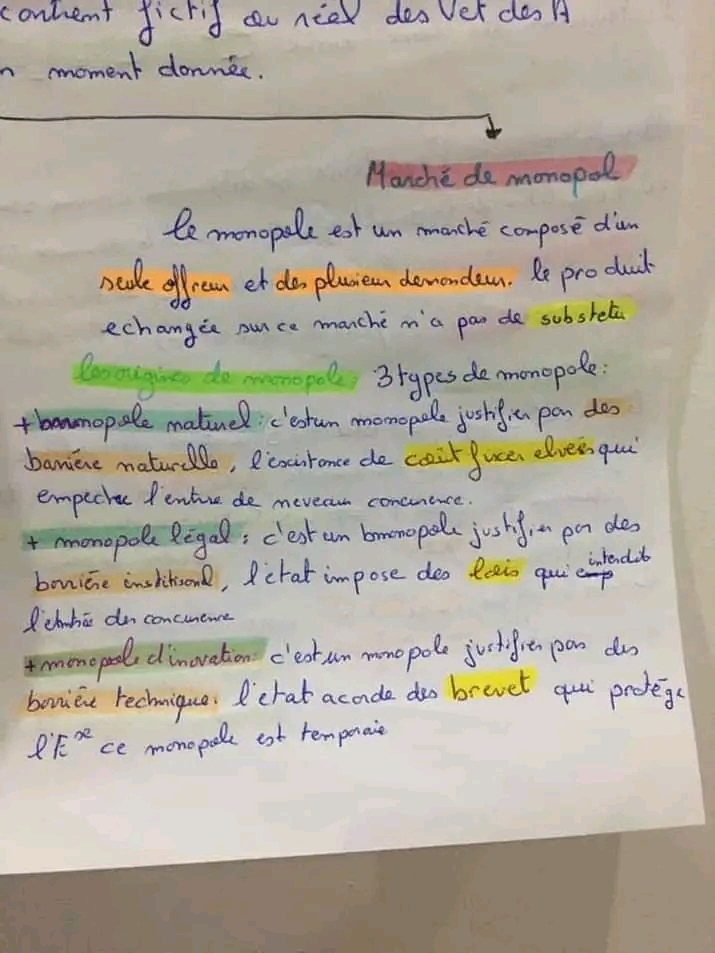 contient fictif ou réel des Vet des A
n moment donnée.
Marché de monopol
le monopole est un marché composé d'un
seule offreur et des plusieur demandeur. le produit
echangée sur ce marché n'a pas de substetu
les origines de monopole, 3 types de monopole:
+ monopole naturel: c'est un monopole justifier par des
barrière naturelle, l'existance de coût fixer elveés qui
empecher l'entrée de neveau concurence.
+ monopole légal: c'est un bmonopole justifier par des
borrière institisonel, l'état impose des lois qui interdit
l'éntrée des concurence
+ monopole d'inovation: c'est un monopole justifier par des
borrière technique. l'etat acorde des brevet qui protége
l'Ese ce monopole est temporaie